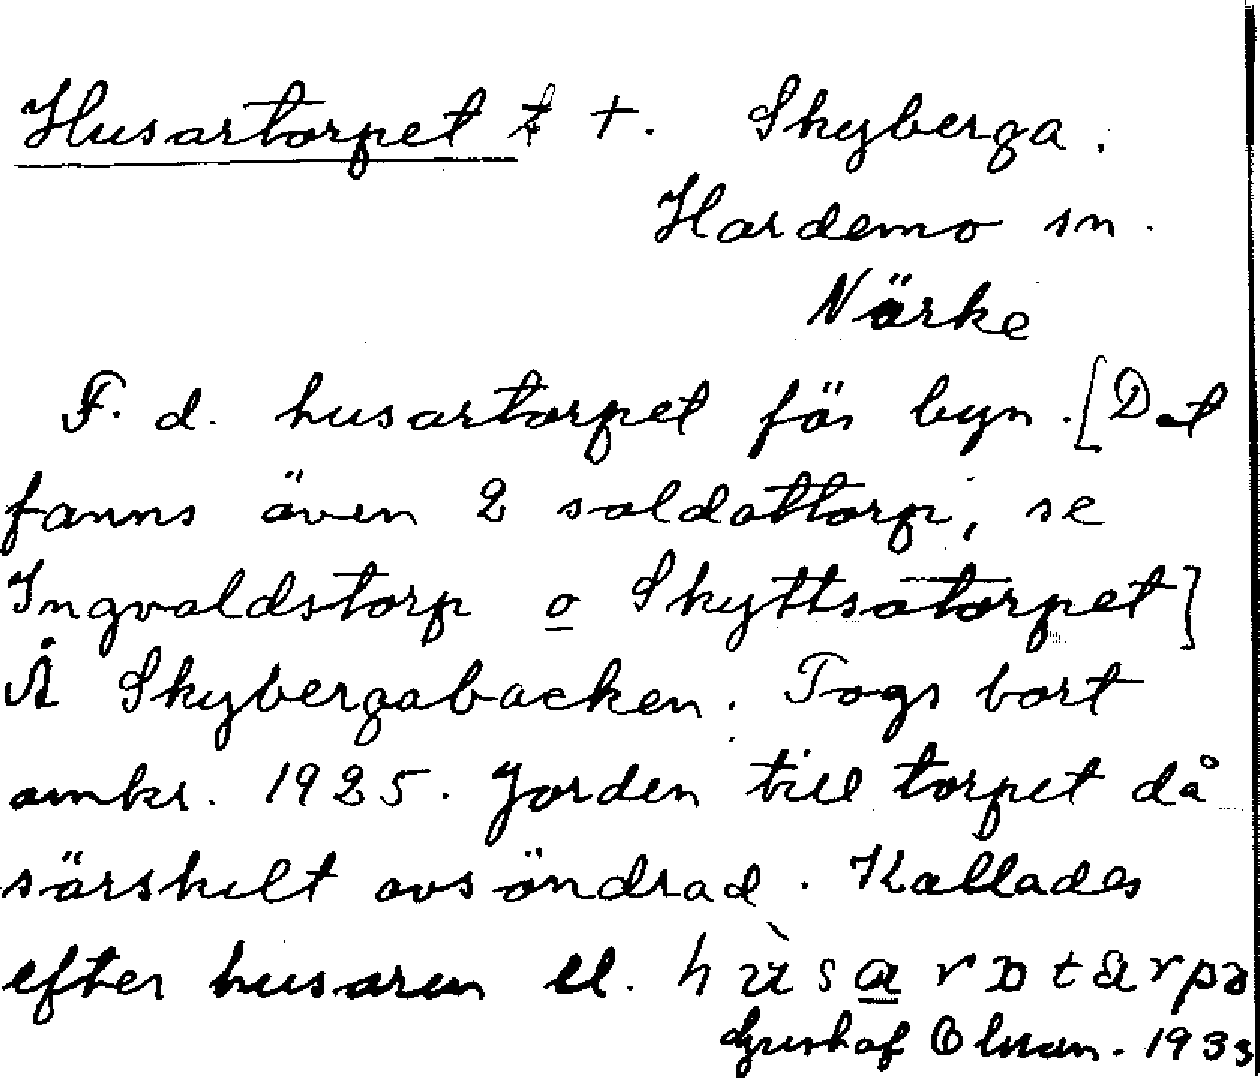 Husartorpet ŧ †. Skyberga.
Hardemo sn.
Närke
F. d. husartorpet för byn. [Det
fanns även 2 soldattorp, se
Ingvaldstorp o Skyttsatorpet]
Å Skybergabacken. Togs bort
omkr. 1925. Jorden till torpet då
särskilt avsöndrad. Kallades
efter husaren el.
Gustaf Olsson. 1933